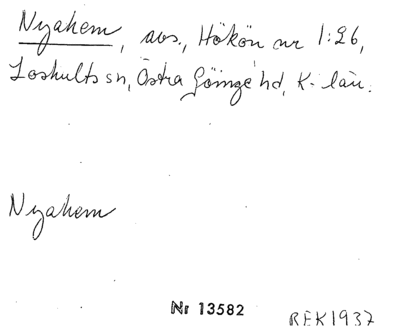 Nyahem, avs., Hökön nr 1:26,
Loshults sn, Östra Göinge hd, K-län.
Nyahem
Nr 13582
REK1937